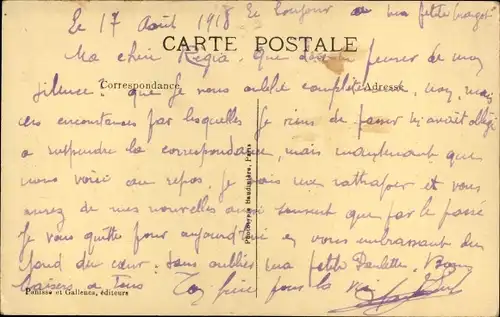 Le 17 Août 1918 le bonjour a ma petite
CARTE POSTALE
Ma chère Regia, que dois-tu penser de mon
Correspondance Adresse
silence: que je vous oublie complètement, non, mais
les circonstances par lesquelles je viens de passer m'avait obligé
a suspendre la correspondance, mais maintenant que
nous voici au repos, je vais me rattraper et vous
aurez de mes nouvelles aussi souvent que par le passé
Je vous quitte pour aujourd'hui en vous embrassant du
fond du cœur: sans oublier ma petite Paulette, Bons
baisers a Tous Ton frère pour la vie
Ponisse et Gallenca, éditeurs
Baudinière, Paris